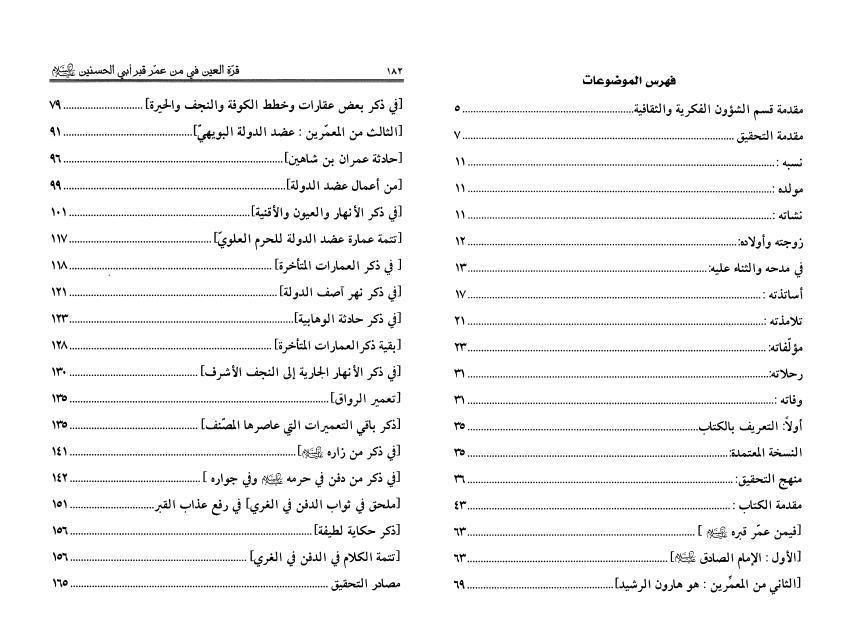 فهرس الموضوعات
مقدمة قسم الشؤون الفكرية والثقافية.....٥
مقدمة التحقيق.....٧
نسبه :.....١١
مولده :.....١١
نشاته :.....١١
زوجته وأولاده:.....١٢
في مدحه والثناء عليه:.....١٣
أساتذته :.....١٧
تلامذته :.....٢١
مؤلّفاته:.....٢٣
رحلاته:.....٣١
وفاته :.....٣١
أولاً: التعريف بالكتاب.....٣٥
النسخة المعتمدة:.....٣٥
منهج التحقيق:.....٣٦
مقدمة الكتاب :.....٤٣
[فيمن عمّر قبره ﷺ ].....٦٣
[الأول : الإمام الصادق ﷺ].....٦٣
[الثاني من المعمِّرين : هو هارون الرشيد].....٦٩
قرّة العين في من عمّر قبر أبي الحسنين ١٨٢
[في ذكر بعض عقارات وخطط الكوفة والنجف والحيرة].....٧٩
[الثالث من المعمّرين : عضد الدولة البويهيّ].....٩١
[حادثة عمران بن شاهين].....٩٦
[من أعمال عضد الدولة].....٩٩
[في ذكر الأنهار والعيون والأقنية].....١٠١
[تتمة عمارة عضد الدولة للحرم العلويّ].....١١٧
[ في ذكر العمارات المتأخرة].....١١٨
[في ذكر نهر آصف الدولة].....١٢١
[في ذكر حادثة الوهابية].....١٢٣
[بقية ذكرالعمارات المتأخرة].....١٢٨
[في ذكر الأنهار الجارية إلى النجف الأشرف].....١٣٠
[تعمير الرواق].....١٣٥
[ذكر باقي التعميرات التي عاصرها المصّنف].....١٣٥
[في ذكر من زاره].....١٤١
[في ذكر من دفن في حرمه وفي جواره ].....١٤٢
[ملحق في ثواب الدفن في الغري] في رفع عذاب القبر.....١٥١
[ذكر حكاية لطيفة].....١٥٦
[تتمة الكلام في الدفن في الغري].....١٥٦
مصادر التحقيق.....١٦٥